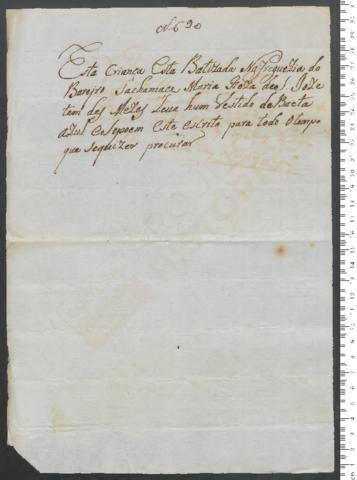 N 690
Esta Criança Esta Batizada Na freguezia do
Bareiro Sachamace Maria Roza de S. Joze
tem des Mezes Leva hum Vestido de Baeta
azul eesepoem Este escrito para todo Otempo
que sequizer procurar